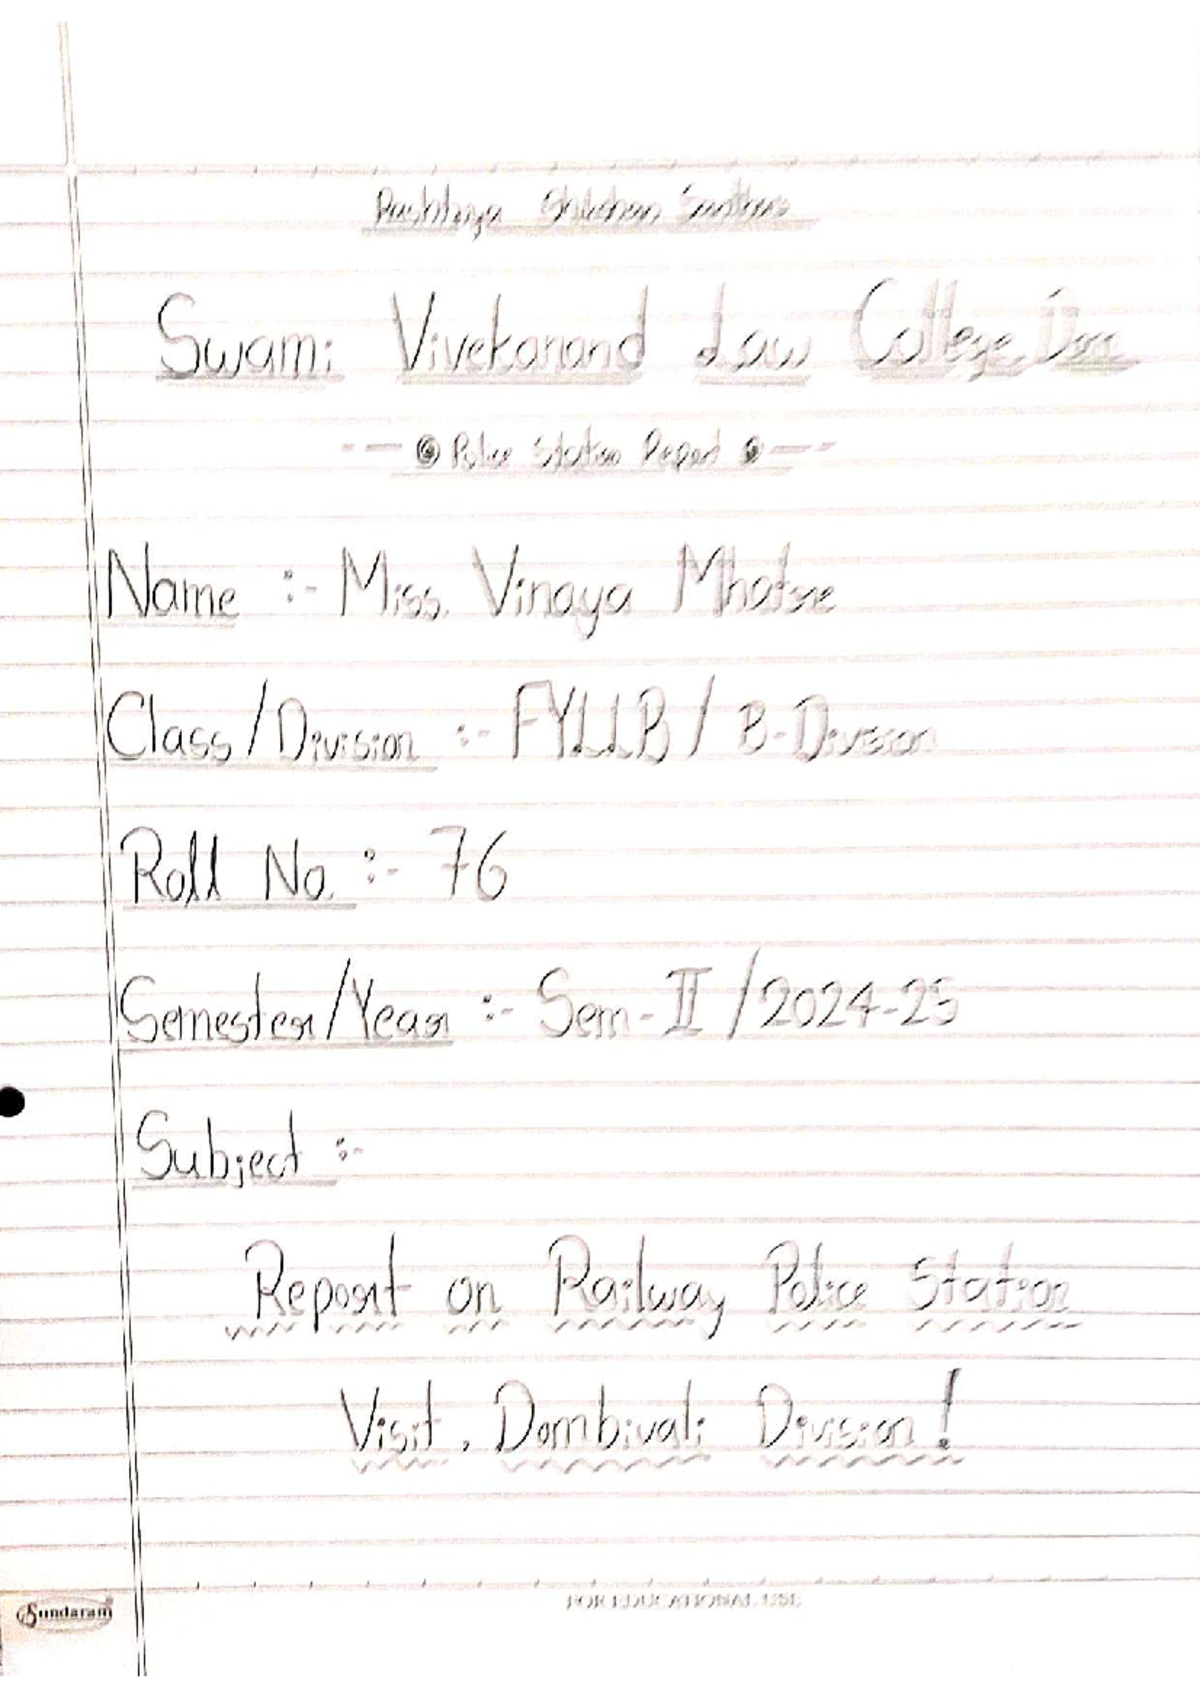 Rashtriya Shikshan Sanstha's
Swami Vivekanand Law College, Dom
Police Station Report
Name :- Miss. Vinaya Mhatre
Class/Division :- FYLLB / B-Division
Roll No. :- 76
Semester/Year :- Sem-II / 2024-25
Subject :-
Report on Railway Police Station
Visit, Dombivali Division!
Sundaram
FOR EDUCATIONAL USE